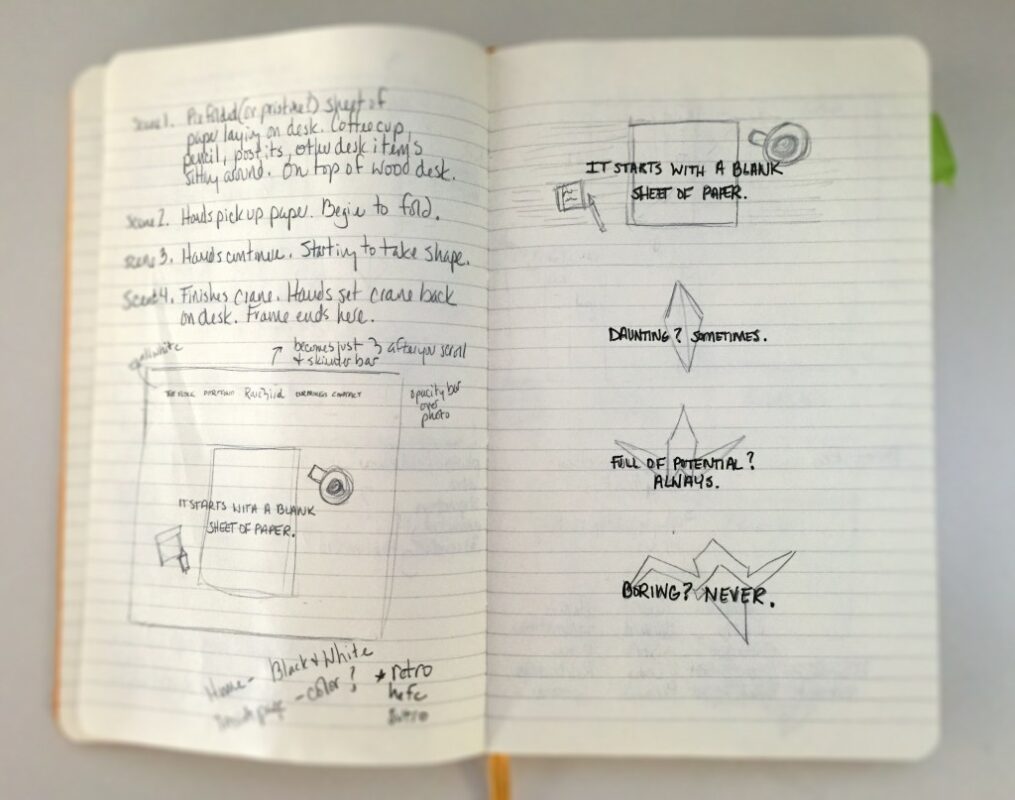 Scene 1. Prefolded (or pristine?) sheet of
paper laying on desk. Coffee cup,
pencil, postits, other desk items
sitting around. On top of wood desk.
Scene 2. Hands pick up paper. Begin to fold.
Scene 3. Hands continue. Starting to take shape.
Scene 4. Finishes crane. Hands set crane back
on desk. Frame ends here.
becomes just 3 after you scroll
& skinnier bar
white
CONTACT
opacity bar
over
photo
IT STARTS WITH A BLANK
SHEET OF PAPER.
Home - Black & White
page - color?
* retro
IT STARTS WITH A BLANK
SHEET OF PAPER.
DAUNTING? SOMETIMES.
FULL OF POTENTIAL?
ALWAYS.
BORING? NEVER.